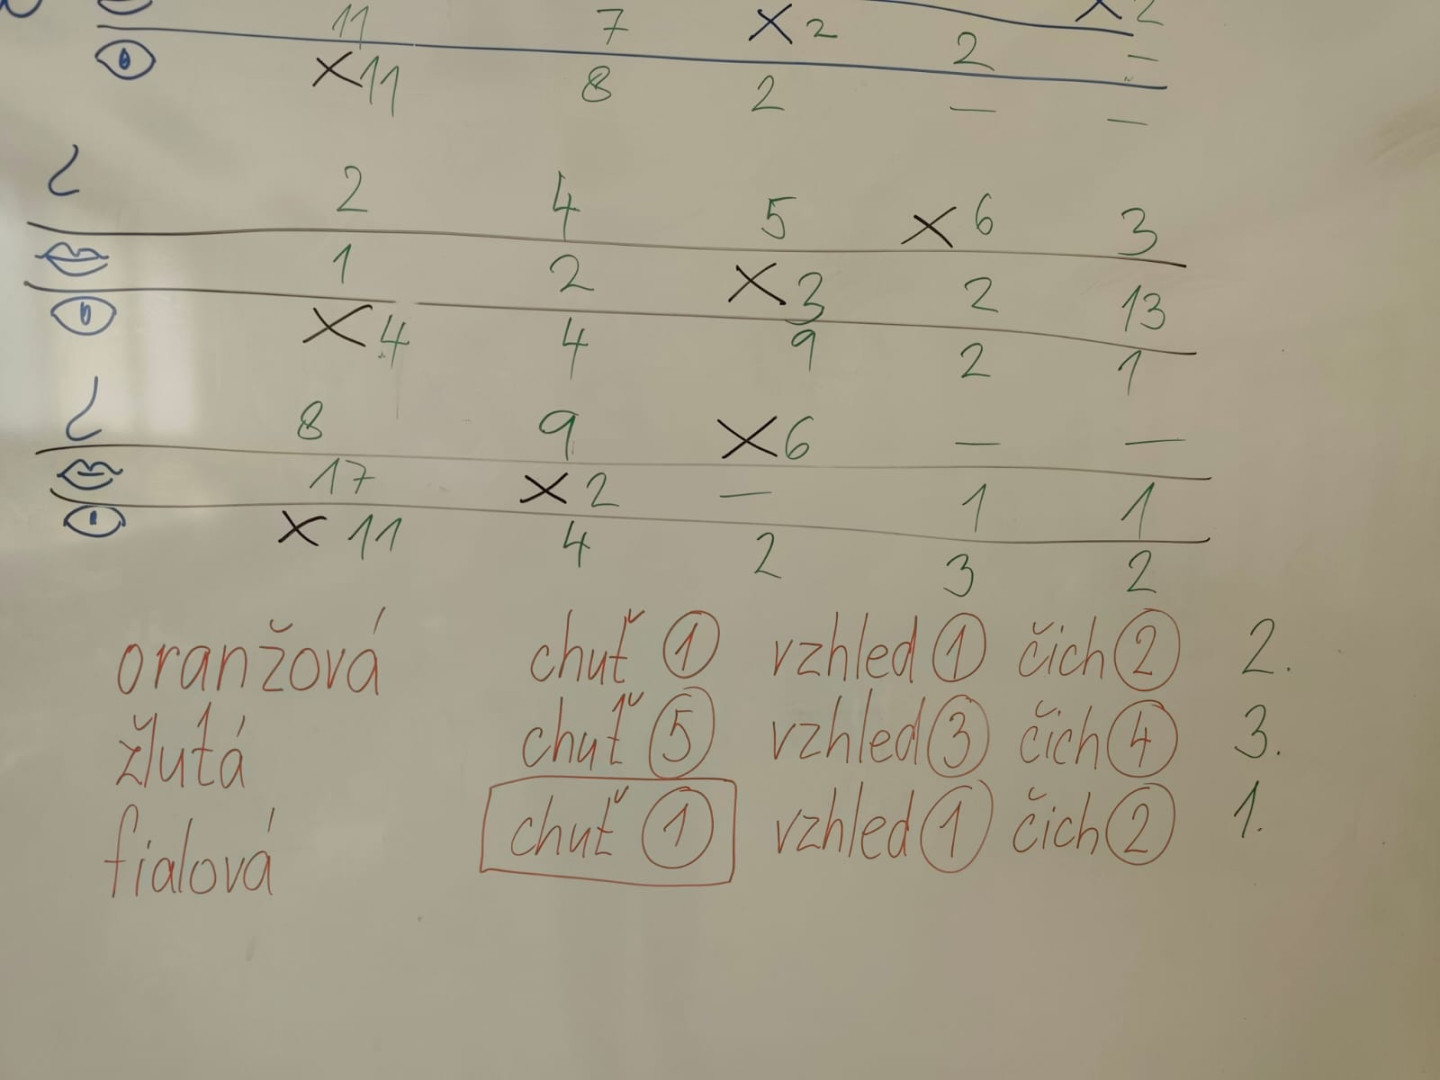 11 7 X 2 2 X 2
X 11 8 2 — —
2 4 5 X 6 3
1 2 X 3 2 13
X 4 4 9 2 1
8 9 X 6 — —
17 X 2 — 1 1
X 11 4 2 3 2
oranžová chuť 1 vzhled 1 čich 2 2.
žlutá chuť 5 vzhled 3 čich 4 3.
fialová chuť 1 vzhled 1 čich 2 1.